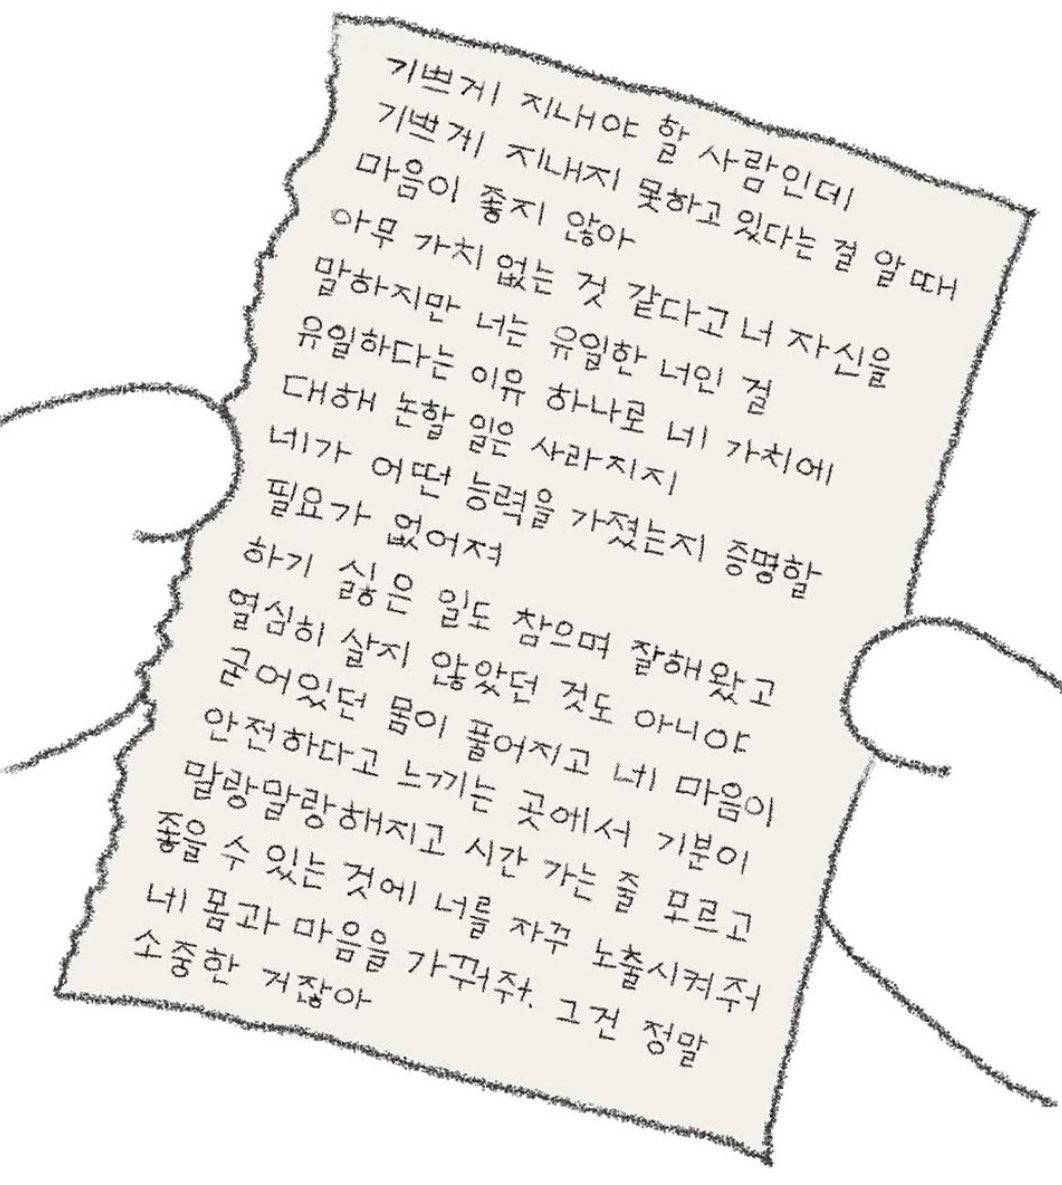 기쁘게 지내야 할 사람인데
기쁘게 지내지 못하고 있다는 걸 알 때
마음이 좋지 않아
아무 가치 없는 것 같다고 너 자신을
말하지만 너는 유일한 너인 걸
유일하다는 이유 하나로 네 가치에
대해 논할 일은 사라지지
네가 어떤 능력을 가졌는지 증명할
필요가 없어져
하기 싫은 일도 참으며 잘해왔고
열심히 살지 않았던 것도 아니야
굳어있던 몸이 풀어지고 네 마음이
안전하다고 느끼는 곳에서 기분이
말랑말랑해지고 시간 가는 줄 모르고
좋을 수 있는 것에 너를 자꾸 노출시켜줘
네 몸과 마음을 가꿔줘. 그건 정말
소중한 거잖아